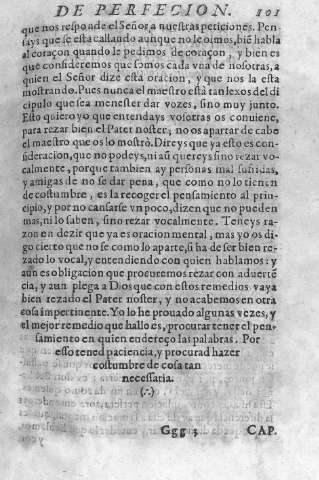 DE PERFECION. 101
que nos responde el Señor a nuestras peticiones. Pen-
says que se esta callando aunque no le oimos, biẽ habla
al coraçon quando le pedimos de coraçon, y bien es
que consideremos que somos cada vna de nosotras, a
quien el Señor dize esta oracion, y que nos la esta
mostrando. Pues nunca el maestro està tan lexos del di
cipulo que sea menester dar vozes, sino muy junto.
Esto quiero yo que entendays vosotras os conuiene,
para rezar bien el Pater noster, no os apartar de cabe
el maestro que os lo mostrò. Direys que ya esto es con-
sideracion, que no podeys, ni aũ quereys sino rezar vo-
calmente, porque tambien ay personas mal sufridas,
y amigas de no se dar pena, que como no lo tienen
de costumbre, es la recoger el pensamiento al prin-
cipio, y por no cansarse vn poco, dizen que no pueden
mas, ni lo saben, sino rezar vocalmente. Teneys ra-
zon en dezir que ya es oracion mental, mas yo os di-
go cierto que no se como lo aparte, si ha de ser bien re-
zado lo vocal, y entendiendo con quien hablamos: y
aũ es obligacion que procuremos rezar con aduertẽ
cia, y aun plega a Dios que con estos remedios vaya
bien rezado el Pater noster, y no acabemos en otra
cosa impertinente. Yo lo he prouado algunas vezes, y
el mejor remedio que hallo es, procurar tener el pen-
samiento en quien endereço las palabras. Por
esso tened paciencia, y procurad hazer
costumbre de cosa tan
necessaria.
(∴)
Ggg 3 CAP.